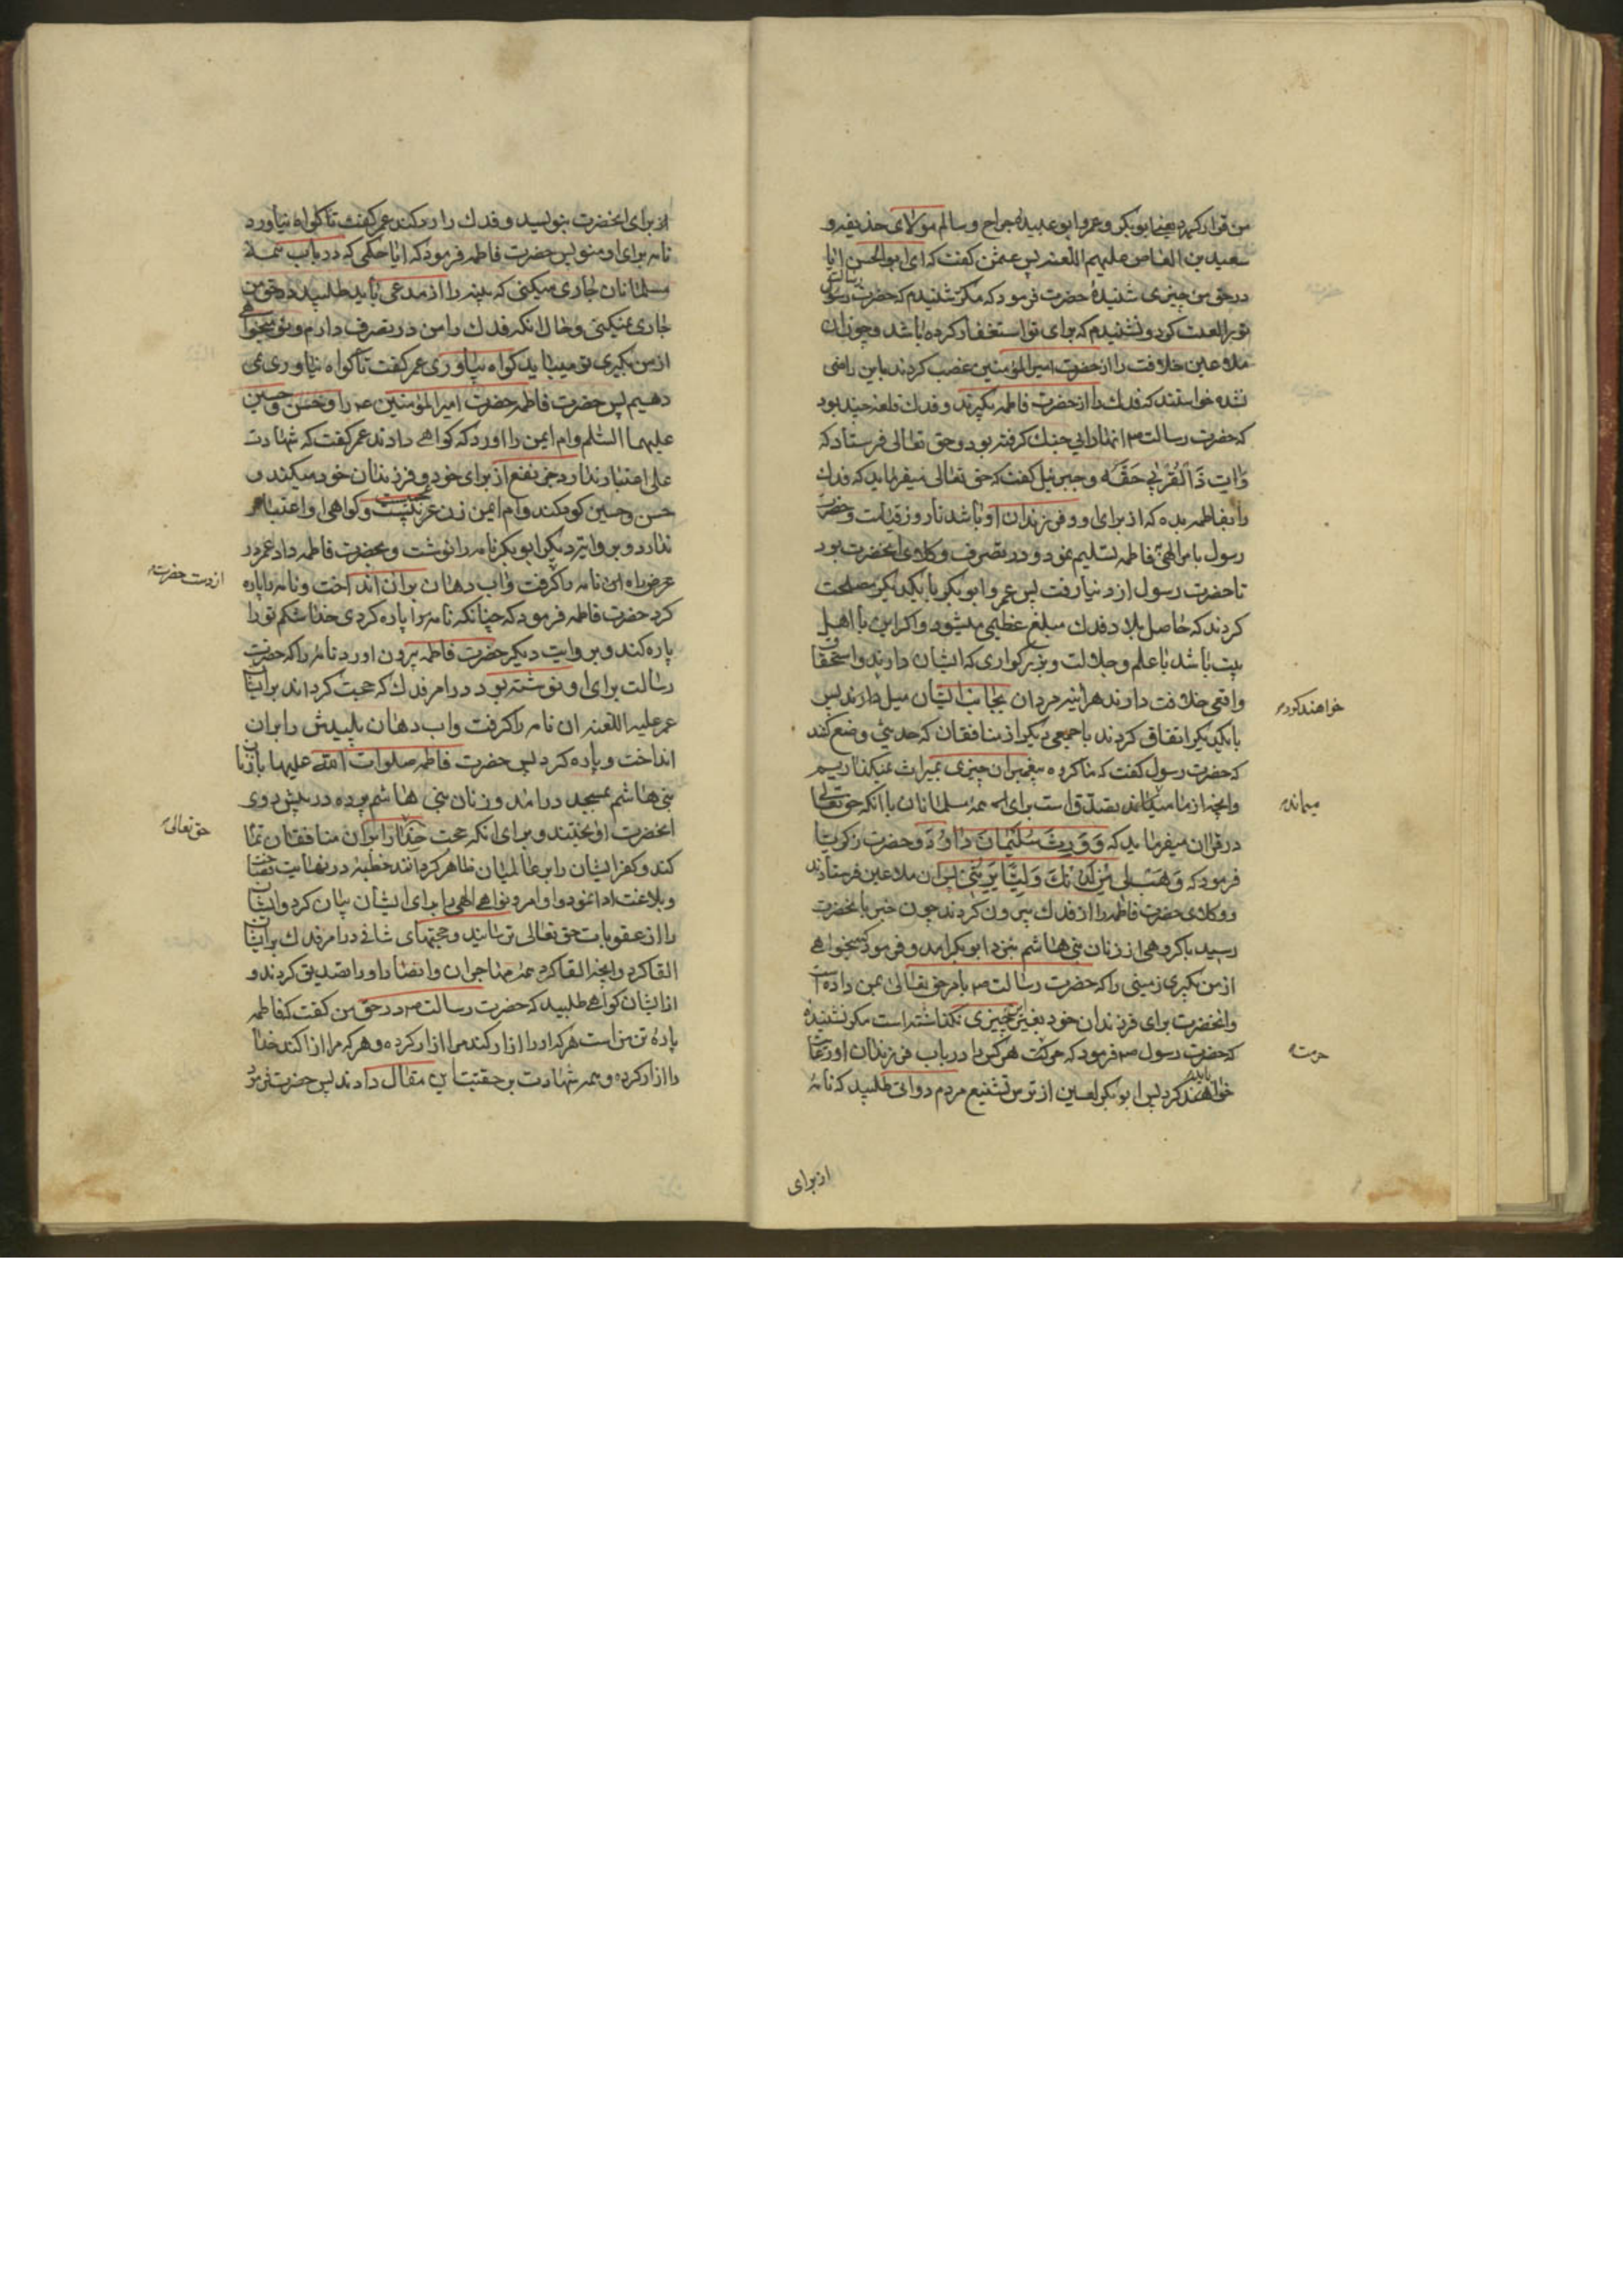 من قرار کرد یعنی ابوبکر و عمر و ابو عبیدهٔ جراح و سالم مولای حذیفه و
سعید بن العاص علیهم اللعنه پس عثمن گفت که ای ابوالحسن ایا
در حق من چیزی شنیدهٔ حضرت فرمود که مکرّ شنیدم که حضرت رسالت
تورا لعنت کرد و نشنیدم که برای تو استغفار کرده باشد و چون ان
ملاعین خلافت را از حضرت امیرالمؤمنین غصب کردند باین راضی
نشده خواستند که فدك را از حضرت فاطمه بگیرند و فدك قلعهٔ چند بود
که حضرت رسالت ص انها را بی جنك گرفته بود و حق تعالی فرستاد که
وَاٰتِ ذَا الْقُرْبٰى حَقَّهُ و جبرئیل گفت که حق تعالی میفرماید که فدك
را بفاطمه بده که از برای او و فرزندان او باشد تا روز قیامت و حضرت
رسول بامر الهی فاطمه تسلیم نمود و در تصرف وکلای انحضرت بود
تا حضرت رسول از دنیا رفت پس عمر و ابو بکر با یکدیکر مصلحت
کردند که حاصل بلاد فدك مبلغ عظیمی میشود و اکر این با اهل
بیت باشد با علم و جلالت و بزرکواری که ایشان دارند و استحقاق
واقعی خلافت دارند هراینه مردان بجانب ایشان میل دارند پس
خواهند کرد
با یکدیکر اتفاق کردند با جمعی دیکر از منافقان که حدیثی وضع کنند
که حضرت رسول گفت که ما کروه پیغمبران چیزی بمیراث نمیکذاریم
وانچه از ما میماند تصدّق است برای همهٔ مسلمانان با انکه حق تعالی
میماند
در قران میفرماید که وَوَرِثَ سُلَيْمَانُ دَاوُدَ و حضرت زکریا
فرمود که وَهَبْ لِي مِنْ لَدُنْكَ وَلِيًّا يَرِثُنِي پس ان ملاعین فرستادند
و وکلای حضرت فاطمه را از فدك بیرون کردند چون خبر بانحضرت
رسید باکروهی از زنان بنی هاشم بنزد ابوبکر امد و فرمود که میخواهی
از من بکیری زمینی را که حضرت رسالت ص بامر حق تعالی بمن داده است
وانحضرت برای فرزندان خود بغیر این چیزی نکذاشته است مکر نشنیدهٔ
که حضرت رسول ص فرمود که حرمت هر کس را در باب فرزندان او رعایت
حرمت
خواهند کرد پس ابوبکر لعین از ترس تشنیع مردم دواتی طلبید که نامهٔ
از برای
از برای انحضرت بنویسد و فدك را رد کند عمر کفت تا کواه نیاورد
نامه برای او منویس حضرت فاطمه فرمود که ایا حکمی که در باب همهٔ
مسلمانان جاری میکنی که بینه را از مدعی باید طلبید در حق من
جاری نمیکنی و حال انکه فدك را من در تصرف دارم و تو میخواهی
از من بکیری تو میباید کواه بیاوری عمر کفت تا کواه نیاوری نمی
دهیم پس حضرت فاطمه حضرت امیرالمؤمنین ع را و حسن و حسین
علیهما السّلم و ام ایمن را اورد که کواهی دادند عمر کفت که شهادت
علی اعتبار ندارد جرّ نفع از برای خود و فرزندان خود میکند و
حسن و حسین کودکند و ام ایمن زن عربیست و کواهی او اعتبار
ندارد و بروایت دیکر ابو بکر نامه را نوشت و بحضرت فاطمه داد عمر در
عرض راه ان نامه را کرفت و اب دهان بر ان انداخت و نامه را پاره
از دست حضرت
کرد حضرت فاطمه فرمود که چنانکه نامه مرا پاره کردی خدا شکم تو را
پاره کند و بروایت دیکر حضرت فاطمه بیرون اورد نامهٔ را که حضرت
رسالت برای او نوشته بود در امر فدك که حجت کرداند بر ایشان
عمر علیه اللعنه ان نامه را کرفت و اب دهان پلیدش را بر ان
انداخت و پاره کرد پس حضرت فاطمه صلوات الله علیها با زنان
بنی هاشم بمسجد در امد و زنان بنی هاشم پرده در پیش روی
انحضرت اویختند و برای انکه حجت خدا را بر ان منافقان تمام
حق تعالی
کند و کفر ایشان را بر عالمیان ظاهر کرداند خطبهٔ در نهایت فصاحت
و بلاغت ادا نمود و اوامر و نواهی الهی را برای ایشان بیان کرد و ایشان
را از عقوبات حق تعالی ترسانید و حجتهای شافی در امر فدك بر ایشان
القا کرد و انچه القا کرد همهٔ مهاجران و انصار او را تصدیق کردند و
از ایشان کواهی طلبید که حضرت رسالت ص در حق من کفت که فاطمه
پارهٔ تن من است هر که او را ازار کند مرا ازار کرده و هر که مرا ازار کند خدا
را ازار کرده و همه شهادت بر حقیّت این مقال دادند پس حضرت فرمود